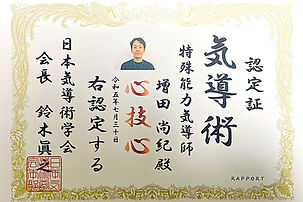 認定証
気導術
特殊能力気導師
増田尚紀殿
心技心
令和五年七月三十日
右認定する
日本気導術学会
会長 鈴木眞之
RAPPORT